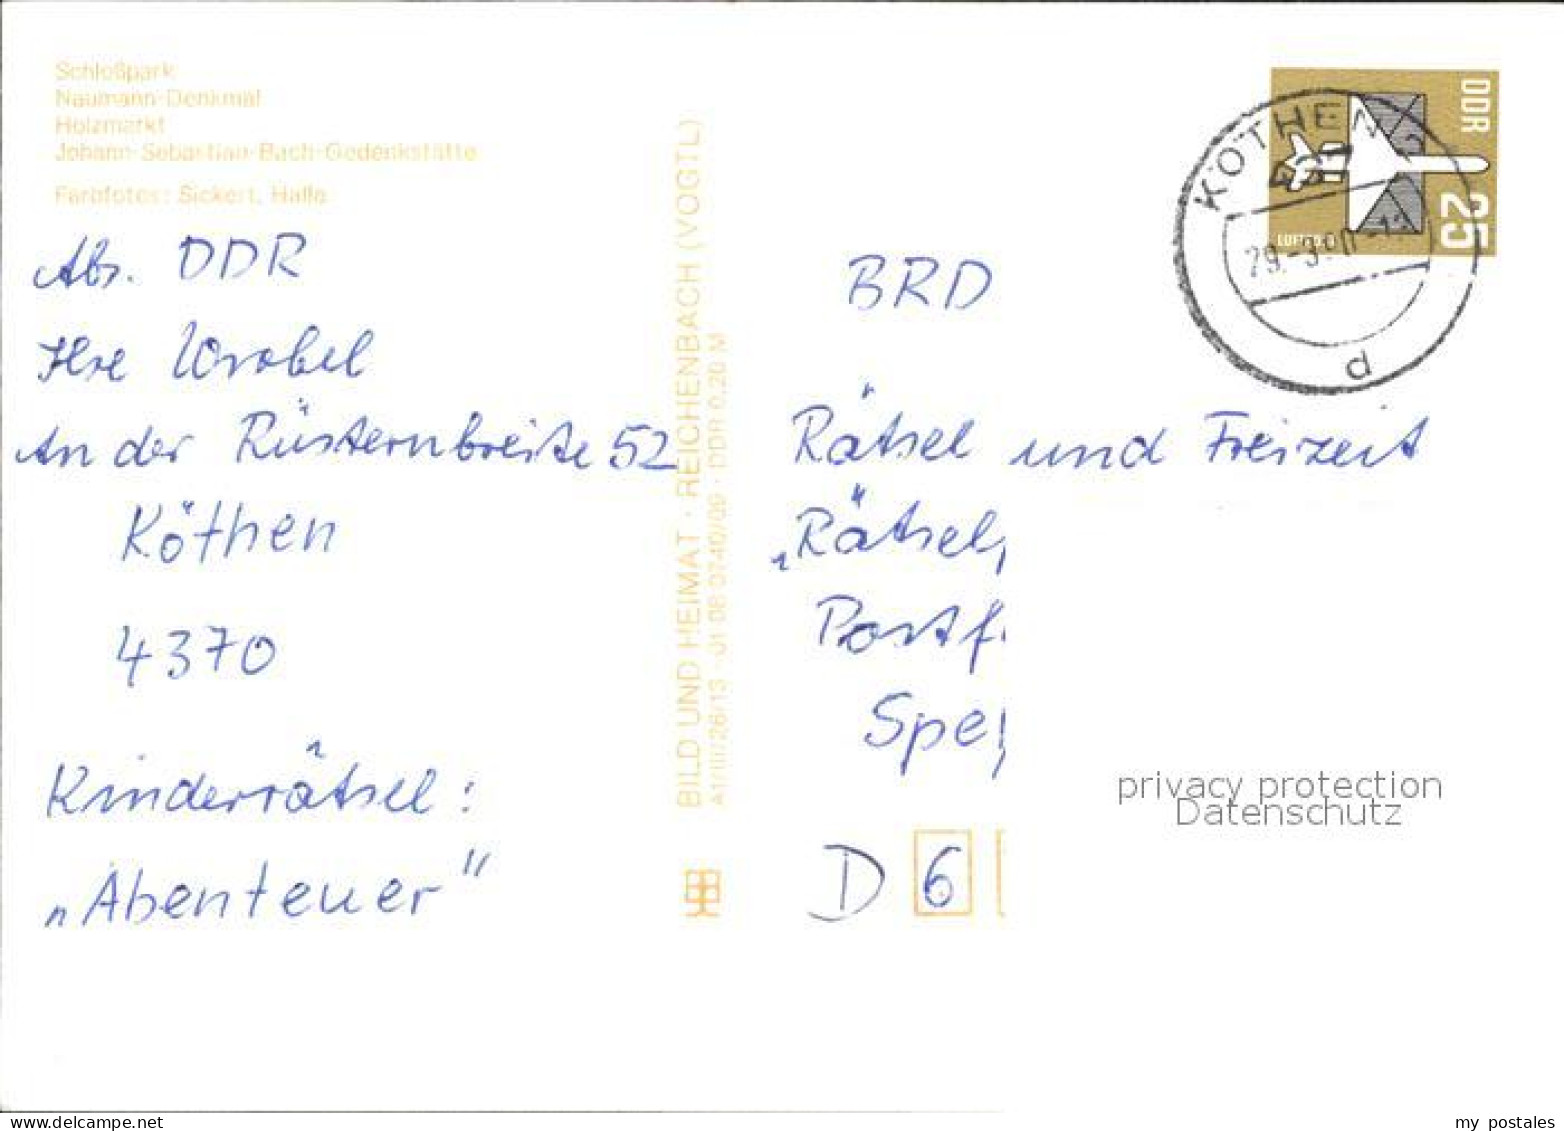 Schloßpark
Naumann-Denkmal
Holzmarkt
Johann-Sebastian-Bach-Gedenkstätte
Farbfotos: Sickert, Halle
Abs. DDR
Ilse Wrobel
An der Rüsternbreite 52
Köthen
4370
Kinderrätsel:
„Abenteuer"
BILD UND HEIMAT · REICHENBACH (VOGTL)
DDR 0,20 M
DDR
25
KÖTHEN 2
d
BRD
Rätsel und Freizeit
„Rätsel,
Postf
Spey
D 6
privacy protection
Datenschutz
my postales